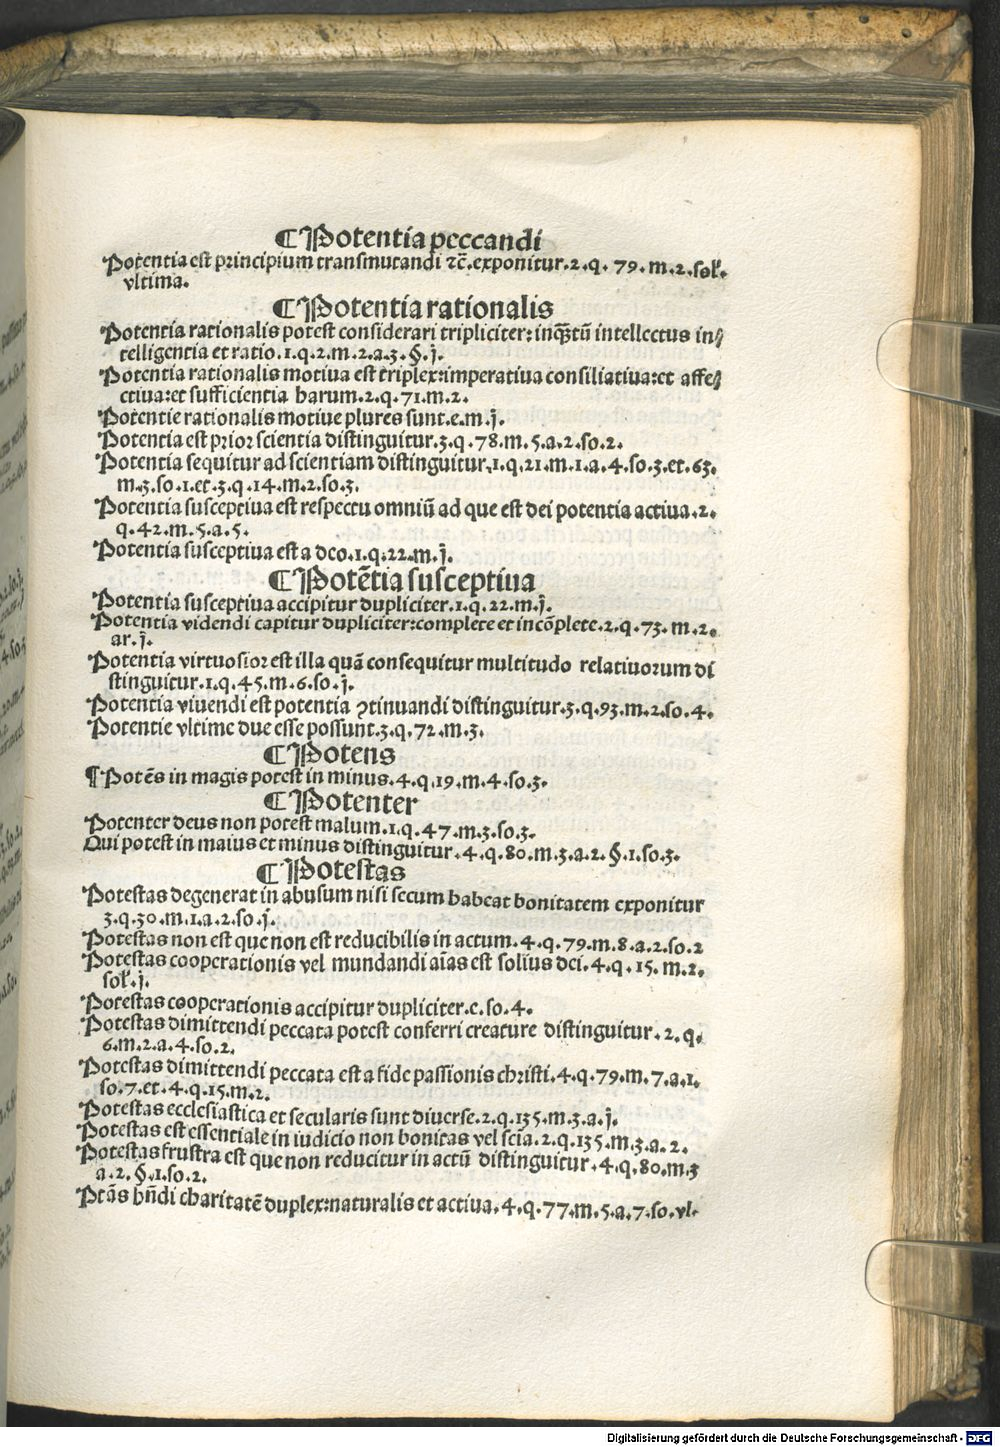 ¶ Potentia peccandi
Potentia est principium transmutandi ⁊c̄.exponitur.2.q.79.m.2.sol̓.
vltima.
¶ Potentia rationalis
Potentia rationalis potest considerari tripliciter:inqꝫtū intellectus in⸗
telligentia et ratio.1.q.2.m.2.a.3.§.j.
Potentia rationalis motiua est triplex:imperatiua consiliatiua:et affe⸗
ctiua:et sufficientia harum.2.q.71.m.2.
Potētie rationalis motiue plures sunt.e.m.j.
Potentia est prior scientia distinguitur.3.q.78.m.5.a.2.so.2.
Potentia sequitur ad scientiam distinguitur.1.q.21.m.1.a.4.so.3.et.63.
m.3.so.1.et.3.q.14.m.2.so.3.
Potentia susceptiua est respectu omniū ad que est dei potentia actiua.2.
q.42.m.5.a.5.
Potentia susceptiua est a deo.1.q.22.m.j.
¶ Potētia susceptiua
Potentia susceptiua accipitur dupliciter.1.q.22.m.j.
Potentia videndi capitur dupliciter:complete et incōplete.2.q.73.m.2.
ar.j.
Potentia virtuosior est illa quā consequitur multitudo relatiuorum di
stinguitur.1.q.45.m.6.so.j.
Potentia viuendi est potentia ꝯtinuandi distinguitur.3.q.93.m.2.so.4.
Potentie vltime due esse possunt.3.q.72.m.3.
¶ Potens
¶ Potēs in magis potest in minus.4.q.19.m.4.so.3.
¶ Potenter
Potenter deus non potest malum.1.q.47.m.3.so.3.
Qui potest in maius et minus distinguitur.4.q.80.m.3.a.2.§.1.so.3.
¶ Potestas
Potestas degenerat in abusum nisi secum habeat bonitatem exponitur
3.q.30.m.1.a.2.so.j.
Potestas non est que non est reducibilis in actum.4.q.79.m.8.a.2.so.2
Potestas cooperationis vel mundandi aīas est solius dei.4.q.15.m.2.
sol̓.j.
Potestas cooperationis accipitur dupliciter.e.so.4.
Potestas dimittendi peccata potest conferri creature distinguitur.2.q.
6.m.2.a.4.so.2.
Potestas dimittendi peccata est a fide passionis christi.4.q.79.m.7.a.1.
so.7.et.4.q.15.m.2.
Potestas ecclesiastica et secularis sunt diuerse.2.q.135.m.3.a.j.
Potestas est essentiale in iudicio non bonitas vel scīa.2.q.135.m.3.a.2.
Potestas frustra est que non reducitur in actū distinguitur.4.q.80.m.3
a.2.§.1.so.2.
Ptās hn̄di charitatē duplex:naturalis et actiua.4.q.77.m.5.a.7.so.vl.
Digitalisierung gefördert durch die Deutsche Forschungsgemeinschaft - DFG